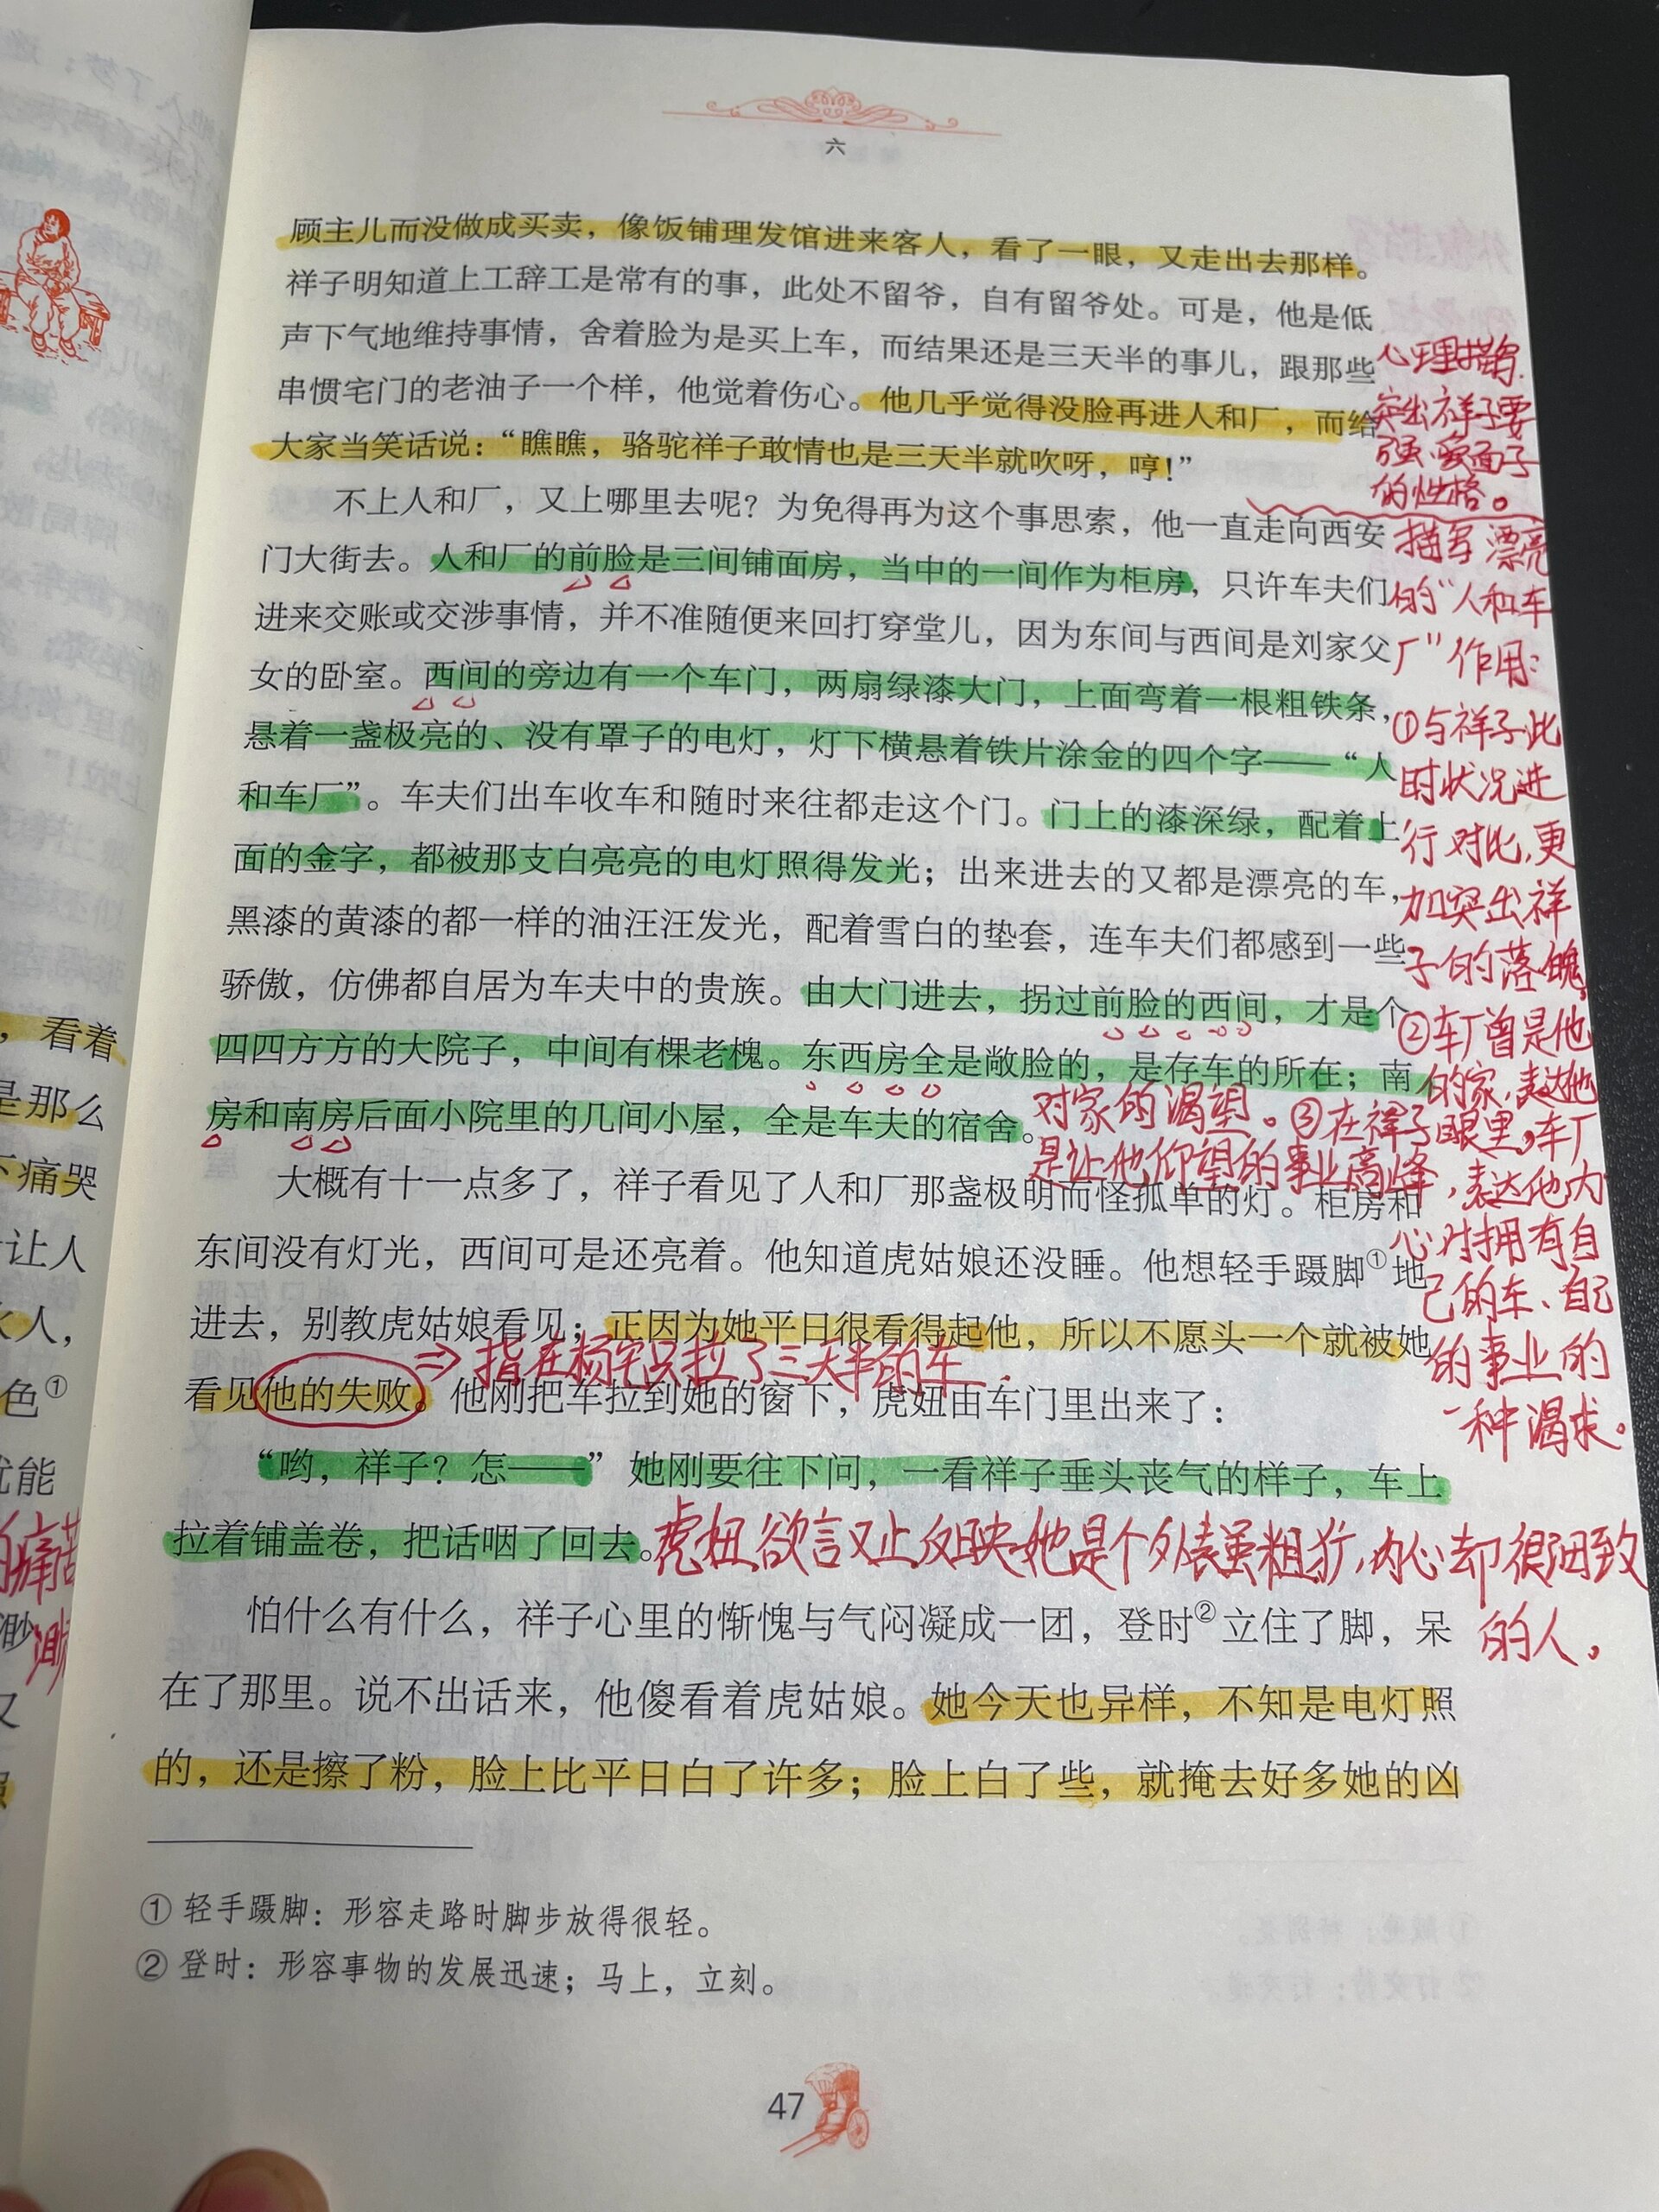 六
顾主儿而没做成买卖，像饭铺理发馆进来客人，看了一眼，又走出去那样。
祥子明知道上工辞工是常有的事，此处不留爷，自有留爷处。可是，他是低
声下气地维持事情，舍着脸为是买上车，而结果还是三天半的事儿，跟那些
串惯宅门的老油子一个样，他觉着伤心。他几乎觉得没脸再进人和厂，而给
大家当笑话说：“瞧瞧，骆驼祥子敢情也是三天半就吹呀，哼！”
不上人和厂，又上哪里去呢？为免得再为这个事思索，他一直走向西安
门大街去。人和厂的前脸是三间铺面房，当中的一间作为柜房，只许车夫们
进来交账或交涉事情，并不准随便来回打穿堂儿，因为东间与西间是刘家父
女的卧室。西间的旁边有一个车门，两扇绿漆大门，上面弯着一根粗铁条，
悬着一盏极亮的、没有罩子的电灯，灯下横悬着铁片涂金的四个字——“人
和车厂”。车夫们出车收车和随时来往都走这个门。门上的漆深绿，配着上
面的金字，都被那支白亮亮的电灯照得发光；出来进去的又都是漂亮的车，
黑漆的黄漆的都一样的油汪汪发光，配着雪白的垫套，连车夫们都感到一些
骄傲，仿佛都自居为车夫中的贵族。由大门进去，拐过前脸的西间，才是个
四四方方的大院子，中间有棵老槐。东西房全是敞脸的，是存车的所在；南
房和南房后面小院里的几间小屋，全是车夫的宿舍。
大概有十一点多了，祥子看见了人和厂那盏极明而怪孤单的灯。柜房和
东间没有灯光，西间可是还亮着。他知道虎姑娘还没睡。他想轻手蹑脚①地
进去，别教虎姑娘看见；正因为她平日很看得起他，所以不愿头一个就被她
看见他的失败。他刚把车拉到她的窗下，虎妞由车门里出来了：
“哟，祥子？怎——”她刚要往下问，一看祥子垂头丧气的样子，车上
拉着铺盖卷，把话咽了回去。
怕什么有什么，祥子心里的惭愧与气闷凝成一团，登时②立住了脚，呆
在了那里。说不出话来，他傻看着虎姑娘。她今天也异样，不知是电灯照
的，还是擦了粉，脸上比平日白了许多；脸上白了些，就掩去好多她的凶
① 轻手蹑脚：形容走路时脚步放得很轻。
② 登时：形容事物的发展迅速；马上，立刻。
47
心理描写.
突出祥子要
强、爱面子
的性格。
描写漂亮
的“人和车
厂”作用：
①与祥子此
时状况进
行对比，更
加突出祥
子的落魄
②车厂曾是他
的家，表达他
对家的渴望。③在祥子眼里，车厂
是让他仰望的事业高峰，表达他内
心对拥有自
己的车、自己
的事业的
一种渴求。
⇒指在杨宅只拉了三天半的车.
虎妞欲言又止反映她是个外表虽粗犷，内心却很细致
的人，
，看着
是那么
痛哭
让人
人，
色①
能
痛苦
渺
又